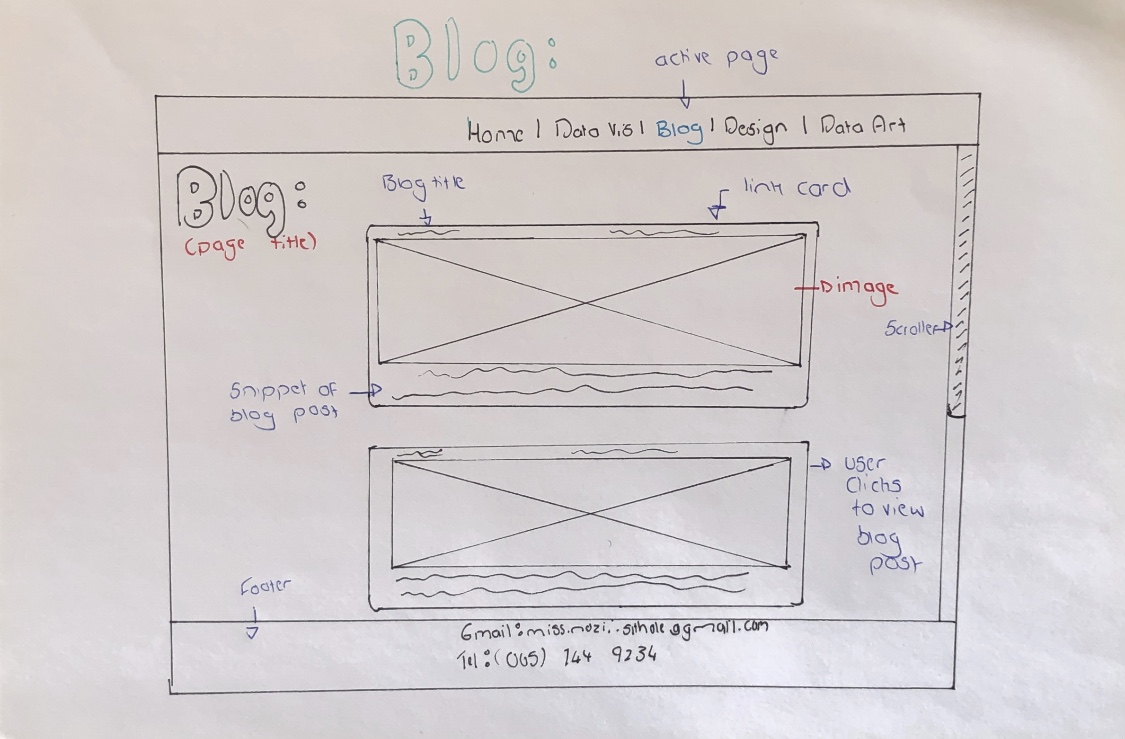 Blog:
active page
Home | Data Vis | Blog | Design | Data Art
Blog:
(page title)
Blog title
link card
image
Scroller
Snippet of
blog post
user
Clicks
to view
blog
post
Footer
Gmail:miss.nozi..sithole@gmail.com
Tel:(065) 144 9234